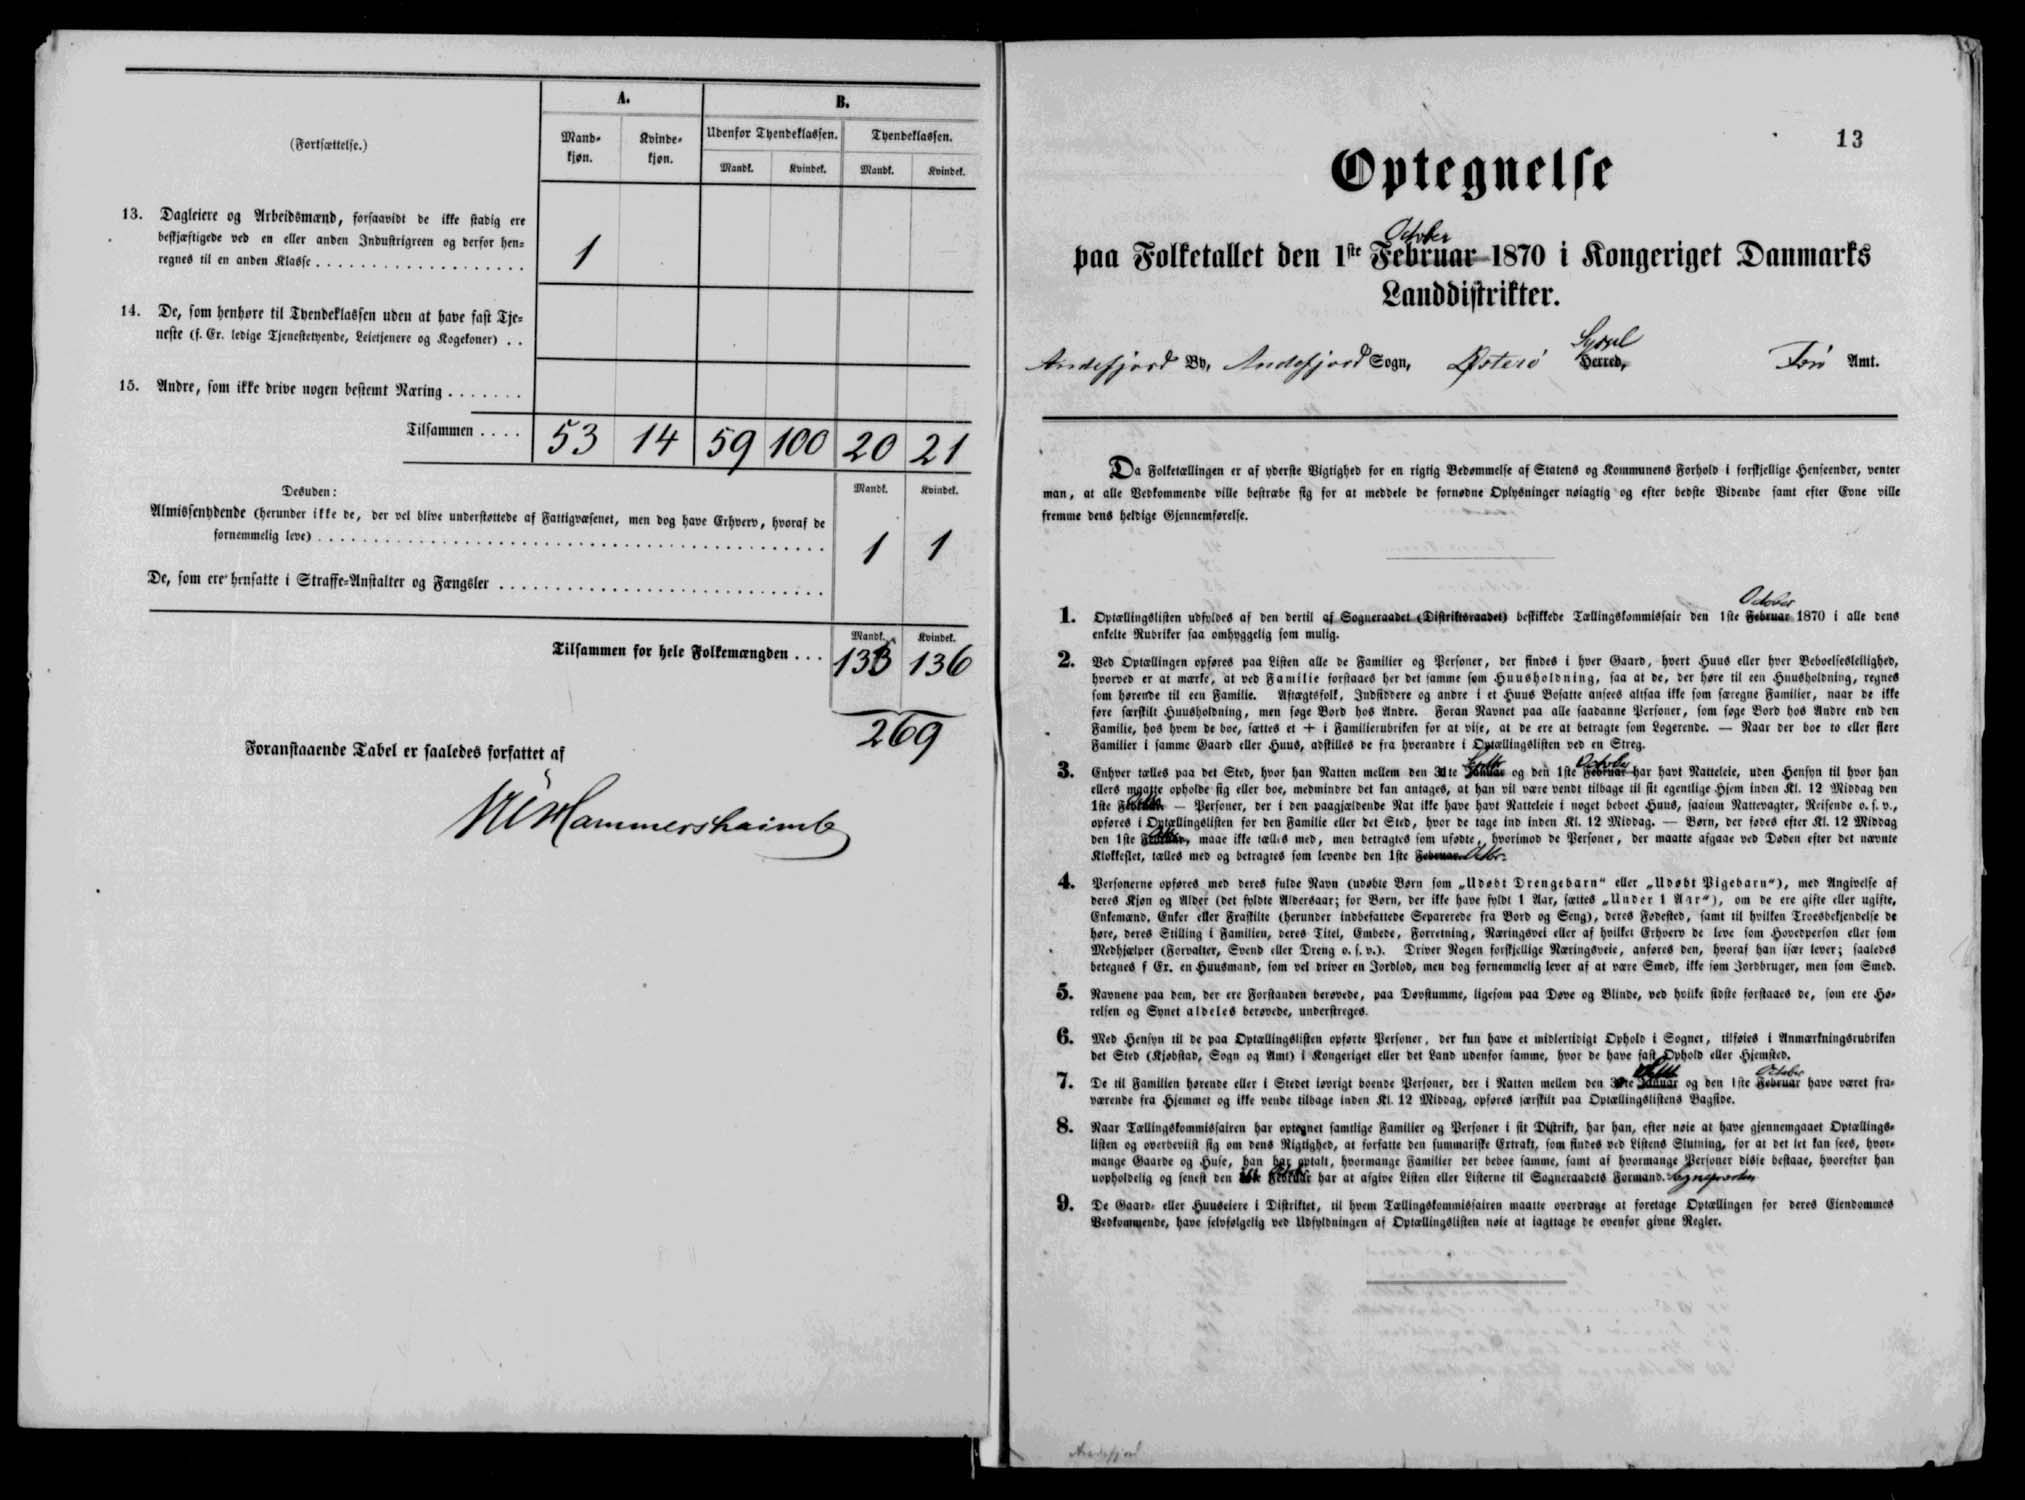 (Fortsættelse.)
A.
B.
Mandkjøn.
Kvindekjøn.
Udenfor Tyendeklassen.
Tyendeklassen.
Mandk.
Kvindek.
Mandk.
Kvindek.
13. Dagleiere og Arbeidsmænd, forsaavidt de ikke stadig ere
beskjæftigede ved en eller anden Industrigreen og derfor hen-
regnes til en anden Klasse . . . . . 1
14. De, som henhøre til Tyendeklassen uden at have fast Tje-
neste (f. Ex. ledige Tjenestetyende, Leietjenere og Kogekoner) . .
15. Andre, som ikke drive nogen bestemt Næring . . . . . . .
Tilsammen . . . . 53 14 59 100 20 21
Desuden:
Mandk. Kvindek.
Almissenydende (herunder ikke de, der vel blive understøttede af Fattigvæsenet, men dog have Erhverv, hvoraf de
fornemmelig leve) . . . . . 1 1
De, som ere hensatte i Straffe-Anstalter og Fængsler . . . . .
Mandk. Kvindek.
Tilsammen for hele Folkemængden . . . 133 136
269
Foranstaaende Tabel er saaledes forfattet af
Hammershaimb
13
Optegnelse
October
paa Folketallet den 1ste Februar 1870 i Kongeriget Danmarks
Landdistrikter.
Syssel
Andefjord By, Andefjord Sogn, Østerø Herred, Færø Amt.
Da Folketællingen er af yderste Vigtighed for en rigtig Bedømmelse af Statens og Kommunens Forhold i forskjellige Henseender, venter
man, at alle Vedkommende ville bestræbe sig for at meddele de fornødne Oplysninger nøiagtig og efter bedste Vidende samt efter Evne ville
fremme dens heldige Gjennemførelse.
October
1. Optællingslisten udfyldes af den dertil af Sogneraadet (Distriktsraadet) beskikkede Tællingskommissair den 1ste Februar 1870 i alle dens
enkelte Rubriker saa omhyggelig som mulig.
2. Ved Optællingen opføres paa Listen alle de Familier og Personer, der findes i hver Gaard, hvert Huus eller hver Beboelsesleilighed,
hvorved er at mærke, at ved Familie forstaaes her det samme som Huusholdning, saa at de, der høre til een Huusholdning, regnes
som hørende til een Familie. Aftægtsfolk, Indsiddere og andre i et Huus Bosatte ansees altsaa ikke som særegne Familier, naar de ikke
føre særskilt Huusholdning, men søge Bord hos Andre. Foran Navnet paa alle saadanne Personer, som søge Bord hos Andre end den
Familie, hos hvem de boe, sættes et + i Familierubriken for at vise, at de ere at betragte som Logerende. — Naar der boe to eller flere
Familier i samme Gaard eller Huus, adskilles de fra hverandre i Optællingslisten ved en Streg.
Septbr October
3. Enhver tælles paa det Sted, hvor han Natten mellem den 31te Januar og den 1ste Februar har havt Natteleie, uden Hensyn til hvor han
ellers maatte opholde sig eller boe, medmindre det kan antages, at han vil være vendt tilbage til sit egentlige Hjem inden Kl. 12 Middag den
1ste Februar. — Personer, der i den paagjældende Nat ikke have havt Natteleie i noget beboet Huus, saasom Nattevagter, Reisende o. s. v.,
opføres i Optællingslisten for den Familie eller det Sted, hvor de tage ind inden Kl. 12 Middag. — Børn, der fødes efter Kl. 12 Middag
den 1ste Februar, maae ikke tælles med, men betragtes som ufødte, hvorimod de Personer, der maatte afgaae ved Døden efter det nævnte
Klokkeslet, tælles med og betragtes som levende den 1ste Februar. Octbr.
4. Personerne opføres med deres fulde Navn (udøbte Børn som „Udøbt Drengebarn“ eller „Udøbt Pigebarn“), med Angivelse af
deres Kjøn og Alder (det fyldte Aldersaar; for Børn, der ikke have fyldt 1 Aar, sættes „Under 1 Aar“), om de ere gifte eller ugifte,
Enkemænd, Enker eller Fraskilte (herunder indbefattede Separerede fra Bord og Seng), deres Fødested, samt til hvilken Troesbekjendelse de
høre, deres Stilling i Familien, deres Titel, Embede, Forretning, Næringsvei eller af hvilket Erhverv de leve som Hovedperson eller som
Medhjælper (Forvalter, Svend eller Dreng o. s. v.). Driver Nogen forskjellige Næringsveie, anføres den, hvoraf han især lever; saaledes
betegnes f Ex. en Huusmand, som vel driver en Jordlod, men dog fornemmelig lever af at være Smed, ikke som Jordbruger, men som Smed.
5. Navnene paa dem, der ere Forstanden berøvede, paa Døvstumme, ligesom paa Døve og Blinde, ved hvilke sidste forstaaes de, som ere Hø-
relsen og Synet aldeles berøvede, understreges.
6. Med Hensyn til de paa Optællingslisten opførte Personer, der kun have et midlertidigt Ophold i Sognet, tilføies i Anmærkningsrubriken
det Sted (Kjøbstad, Sogn og Amt) i Kongeriget eller det Land udenfor samme, hvor de have fast Ophold eller Hjemsted.
October
7. De til Familien hørende eller i Stedet iøvrigt boende Personer, der i Natten mellem den 31te Januar og den 1ste Februar have været fra-
værende fra Hjemmet og ikke vende tilbage inden Kl. 12 Middag, opføres særskilt paa Optællingslistens Bagside.
8. Naar Tællingskommissairen har optegnet samtlige Familier og Personer i sit Distrikt, har han, efter nøie at have gjennemgaaet Optællings-
listen og overbeviist sig om dens Rigtighed, at forfatte den summariske Extrakt, som findes ved Listens Slutning, for at det let kan sees, hvor-
mange Gaarde og Huse, han har optalt, hvormange Familier der beboe samme, samt af hvormange Personer disse bestaae, hvorefter han
uopholdelig og senest den Februar har at afgive Listen eller Listerne til Sogneraadets Formand.
9. De Gaard- eller Huuseiere i Distriktet, til hvem Tællingskommissairen maatte overdrage at foretage Optællingen for deres Eiendommes
Vedkommende, have selvfølgelig ved Udfyldningen af Optællingslisten nøie at iagttage de ovenfor givne Regler.
Andefjord